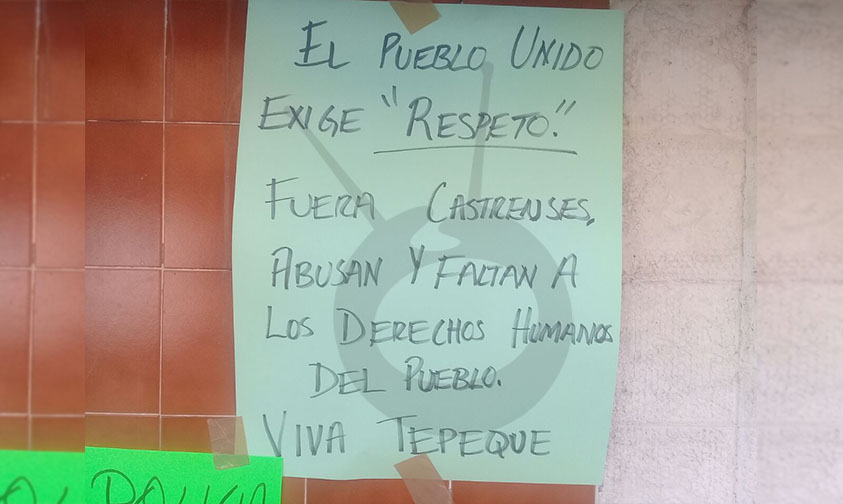 EL PUEBLO UNIDO
EXIGE "RESPETO."
FUERA CASTRENSES,
ABUSAN Y FALTAN A
LOS DERECHOS HUMANOS
DEL PUEBLO.
VIVA TEPEQUE